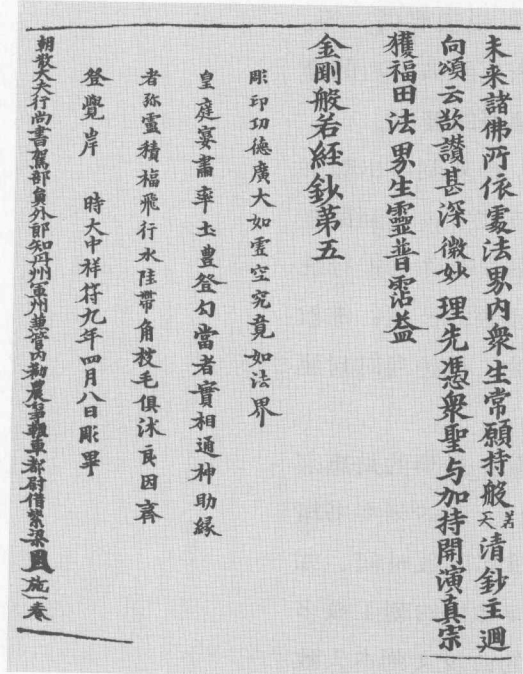 未来諸佛所依處法界内衆生常願持般若天清鈔主迴
向頌云欲讃甚深微妙理先憑衆聖与加持開演真宗
獲福田法界生靈普霑益
金剛般若経鈔第五
彫印功德廣大如虚空究竟如法界
皇庭宴肅率土豊登勾當者實相通神助縁
者弥靈積福飛行水陸帶角披毛俱沐良因齊
登覺岸 時大中祥符九年四月八日彫畢
朝散大夫行尚書駕部員外郎知丹州軍州兼管内勸農事輕車都尉借紫梁 施一卷